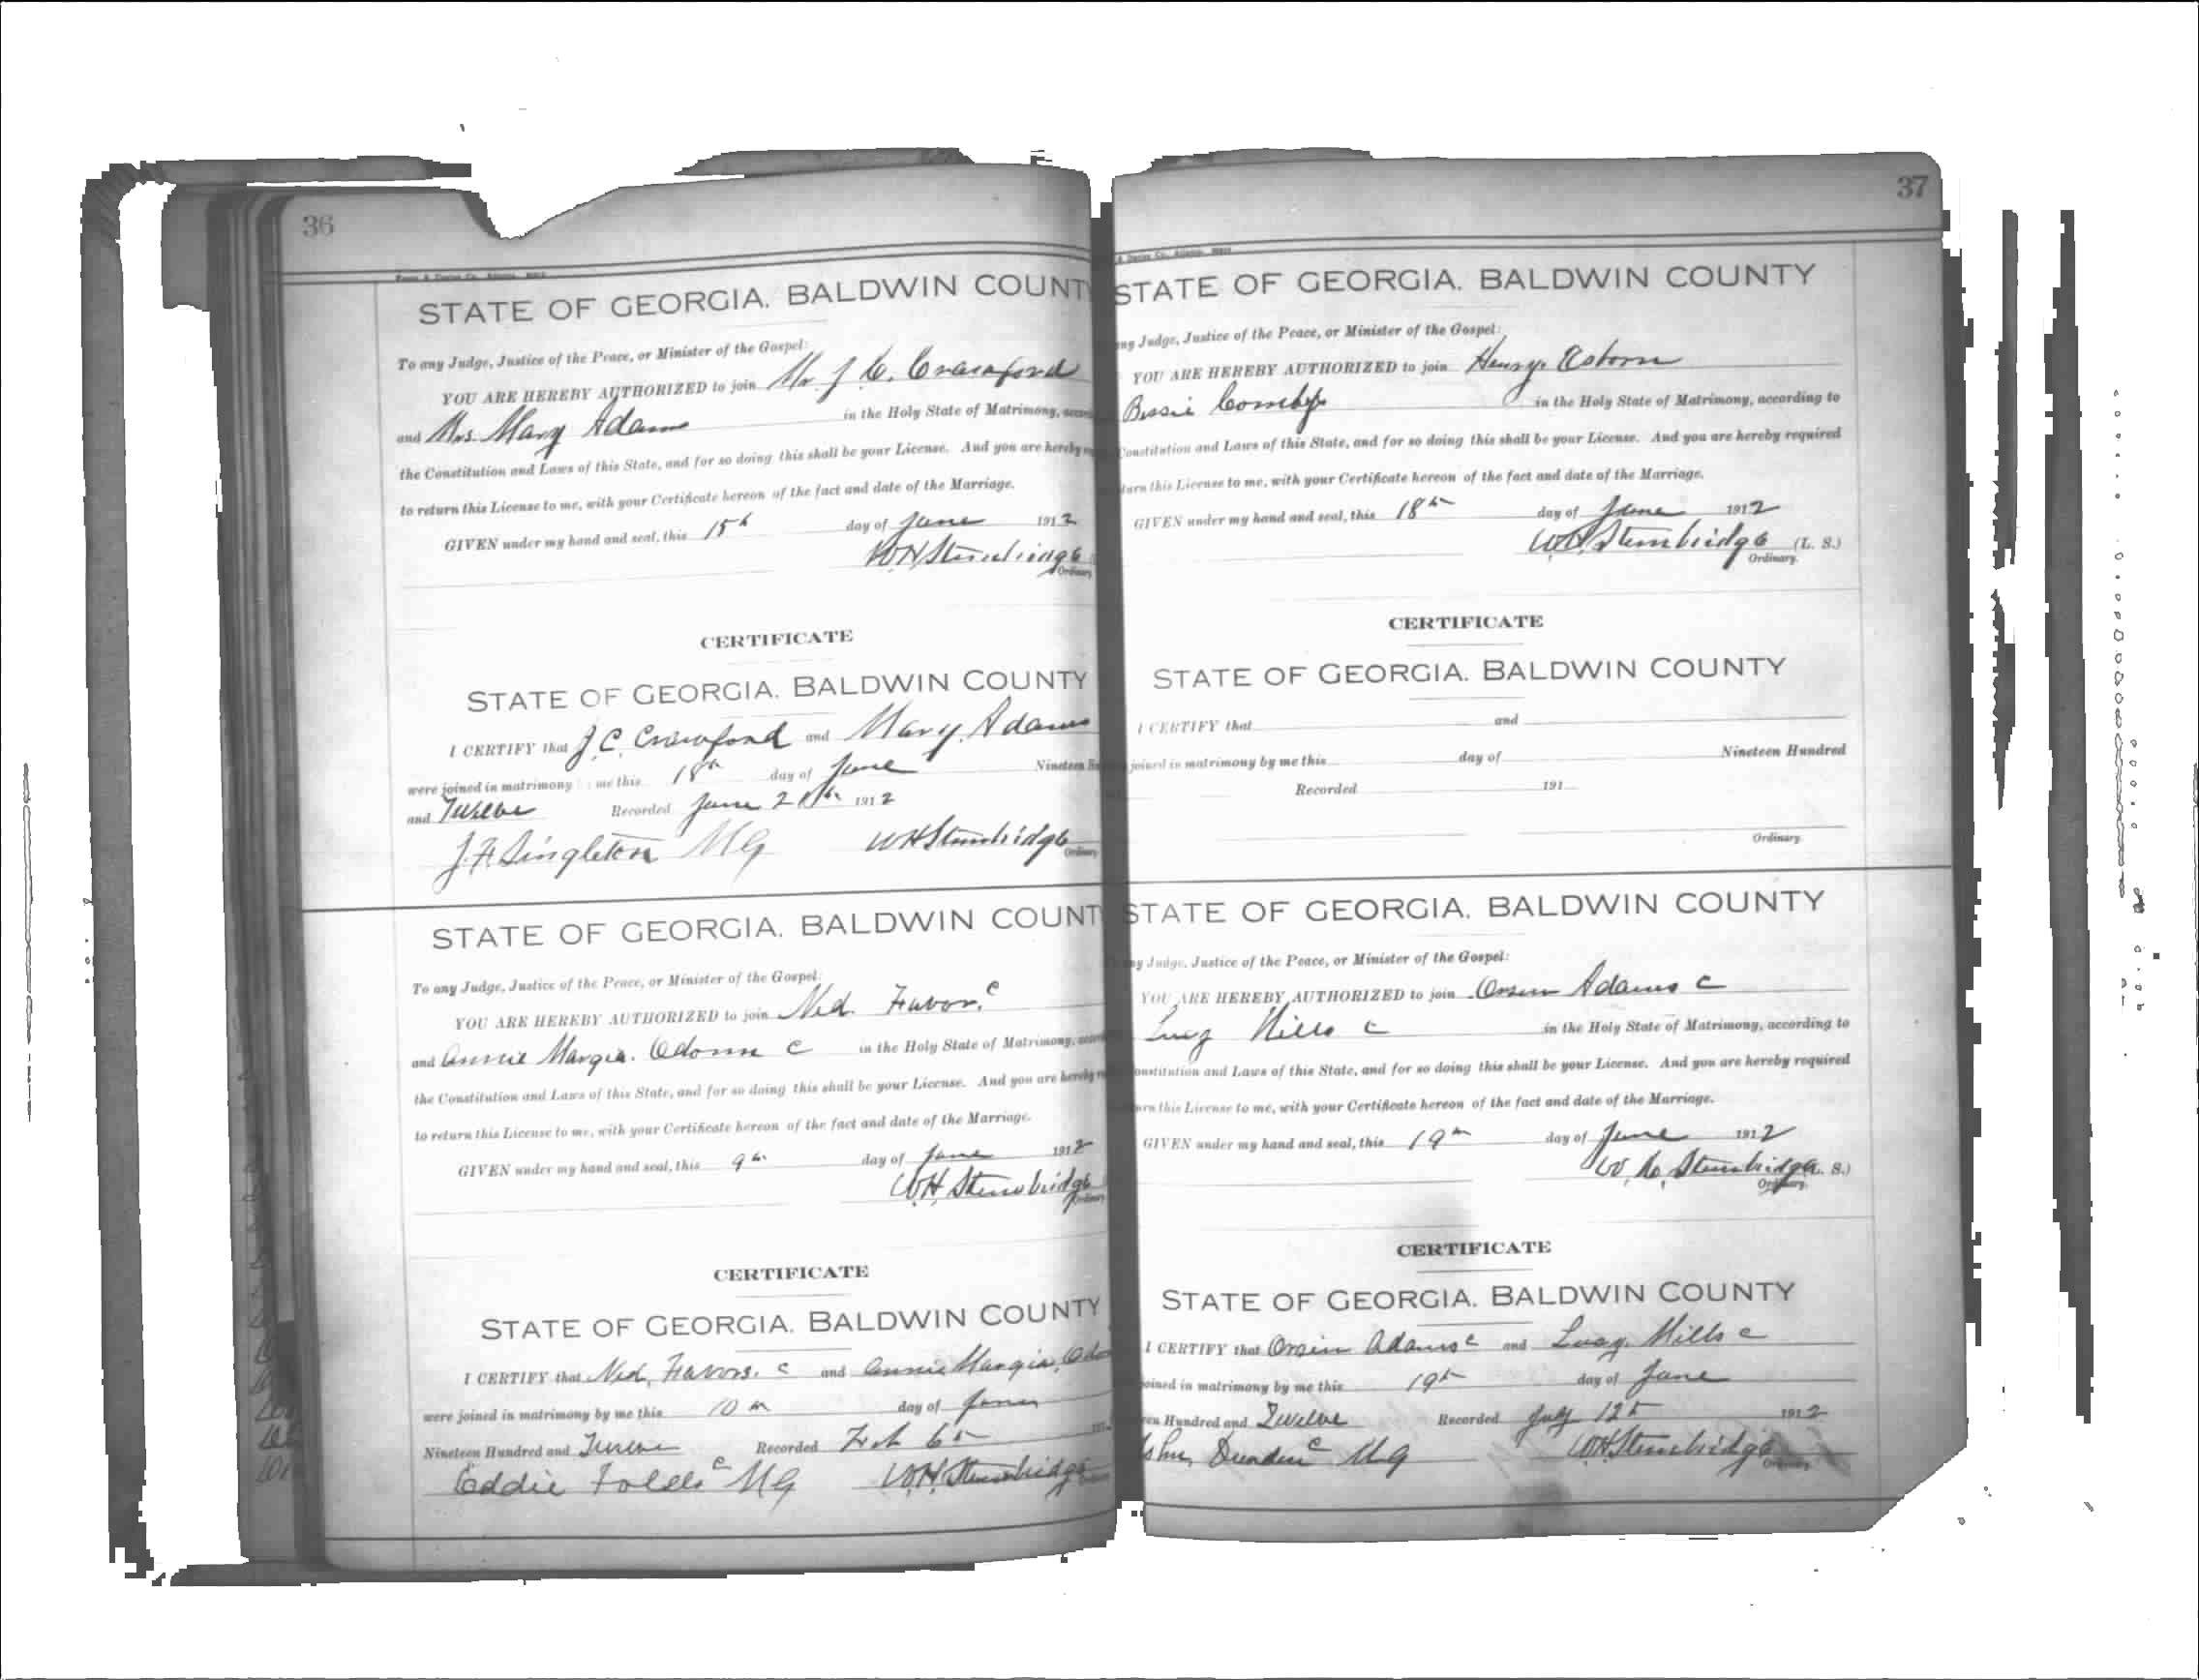 36
STATE OF GEORGIA. BALDWIN COUNT
To any Judge, Justice of the Peace, or Minister of the Gospel:
YOU ARE HEREBY AUTHORIZED to join Mr J. C. Crawford
and Mrs. Mary Adams in the Holy State of Matrimony,
the Constitution and Laws of this State, and for so doing this shall be your License. And you are hereby
to return this License to me, with your Certificate hereon of the fact and date of the Marriage.
GIVEN under my hand and seal, this 15th day of June 1912
W H Stembridge
Ordinary
CERTIFICATE
STATE OF GEORGIA. BALDWIN COUNTY
I CERTIFY that J. C. Crawford and Mary Adams
were joined in matrimony me this 18th day of June Nineteen
and Twelve Recorded June 21th 1912
J. F. Singleton MG W H Stembridge
Ordinary
STATE OF GEORGIA. BALDWIN COUNT
To any Judge, Justice of the Peace, or Minister of the Gospel:
YOU ARE HEREBY AUTHORIZED to join Ned. Favor. c
and Annie Margia. Odom c in the Holy State of Matrimony,
the Constitution and Laws of this State, and for so doing this shall be your License. And you are hereby
to return this License to me, with your Certificate hereon of the fact and date of the Marriage.
GIVEN under my hand and seal, this 9th day of June 1912
W. H. Stembridge
Ordinary
CERTIFICATE
STATE OF GEORGIA. BALDWIN COUNTY
I CERTIFY that Ned, Favors. c and Annie Margia, Odo
were joined in matrimony by me this 10th day of June
Nineteen Hundred and Twelve Recorded Feb 6th 191
Eddie c MG W. H. Stembridge
37
STATE OF GEORGIA. BALDWIN COUNTY
ny Judge, Justice of the Peace, or Minister of the Gospel:
YOU ARE HEREBY AUTHORIZED to join Henry Osborn
Bessie Comby in the Holy State of Matrimony, according to
Constitution and Laws of this State, and for so doing this shall be your License. And you are hereby required
turn this License to me, with your Certificate hereon of the fact and date of the Marriage.
GIVEN under my hand and seal, this 18th day of June 1912
W. H. Stembridge (L. S.)
Ordinary.
CERTIFICATE
STATE OF GEORGIA. BALDWIN COUNTY
I CERTIFY that and
joined in matrimony by me this day of Nineteen Hundred
Recorded 191
Ordinary.
STATE OF GEORGIA. BALDWIN COUNTY
ny Judge, Justice of the Peace, or Minister of the Gospel:
YOU ARE HEREBY AUTHORIZED to join Orsin Adams C
Lucy Mills c in the Holy State of Matrimony, according to
onstitution and Laws of this State, and for so doing this shall be your License. And you are hereby required
urn this License to me, with your Certificate hereon of the fact and date of the Marriage.
GIVEN under my hand and seal, this 19th day of June 1912
W. H. Stembridge (L. S.)
Ordinary.
CERTIFICATE
STATE OF GEORGIA. BALDWIN COUNTY
I CERTIFY that Orsin Adams c and Lucy. Mills c
joined in matrimony by me this 19th day of June
een Hundred and Twelve Recorded July 12th 1912
John, c MG W. H. Stembridge
Ordinary